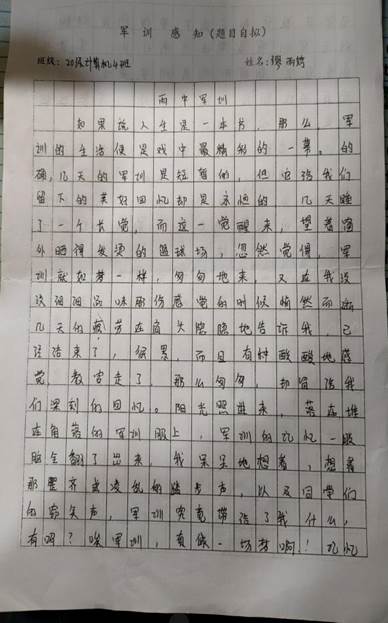 军 训 感 知(题目自拟)
班级:20级计算机4班 姓名:缪雨婷
雨中军训
如果说人生是一本书,那么,军
训的生活便是戏中最精彩的一幕。的
确,几天的军训是短暂的,但它给我们
留下的美好回忆却是永恒的,几天睡
了一个长觉,而这一觉醒来,望着窗
外晒得发烫的篮球场,忽然觉得,军
训就如梦一样,匆匆地来,又在我没
没细细品味那份感觉的时候悄然而逝
几天的疲劳在肩头隐隐地告诉我,已
经结束了,很累,而且有种酸酸地感
觉,教官走了,那么匆匆,却留给我
们深刻的回忆。阳光照进来,落在堆
在角落的军训服上,军训的记忆一股
脑全翻了出来,我呆呆地想着,想着
那整齐或凌乱的踏步声,以及同学们
的窃笑声,军训究竟带给了我什么,
有吗?唉军训,真像一场梦啊!记忆